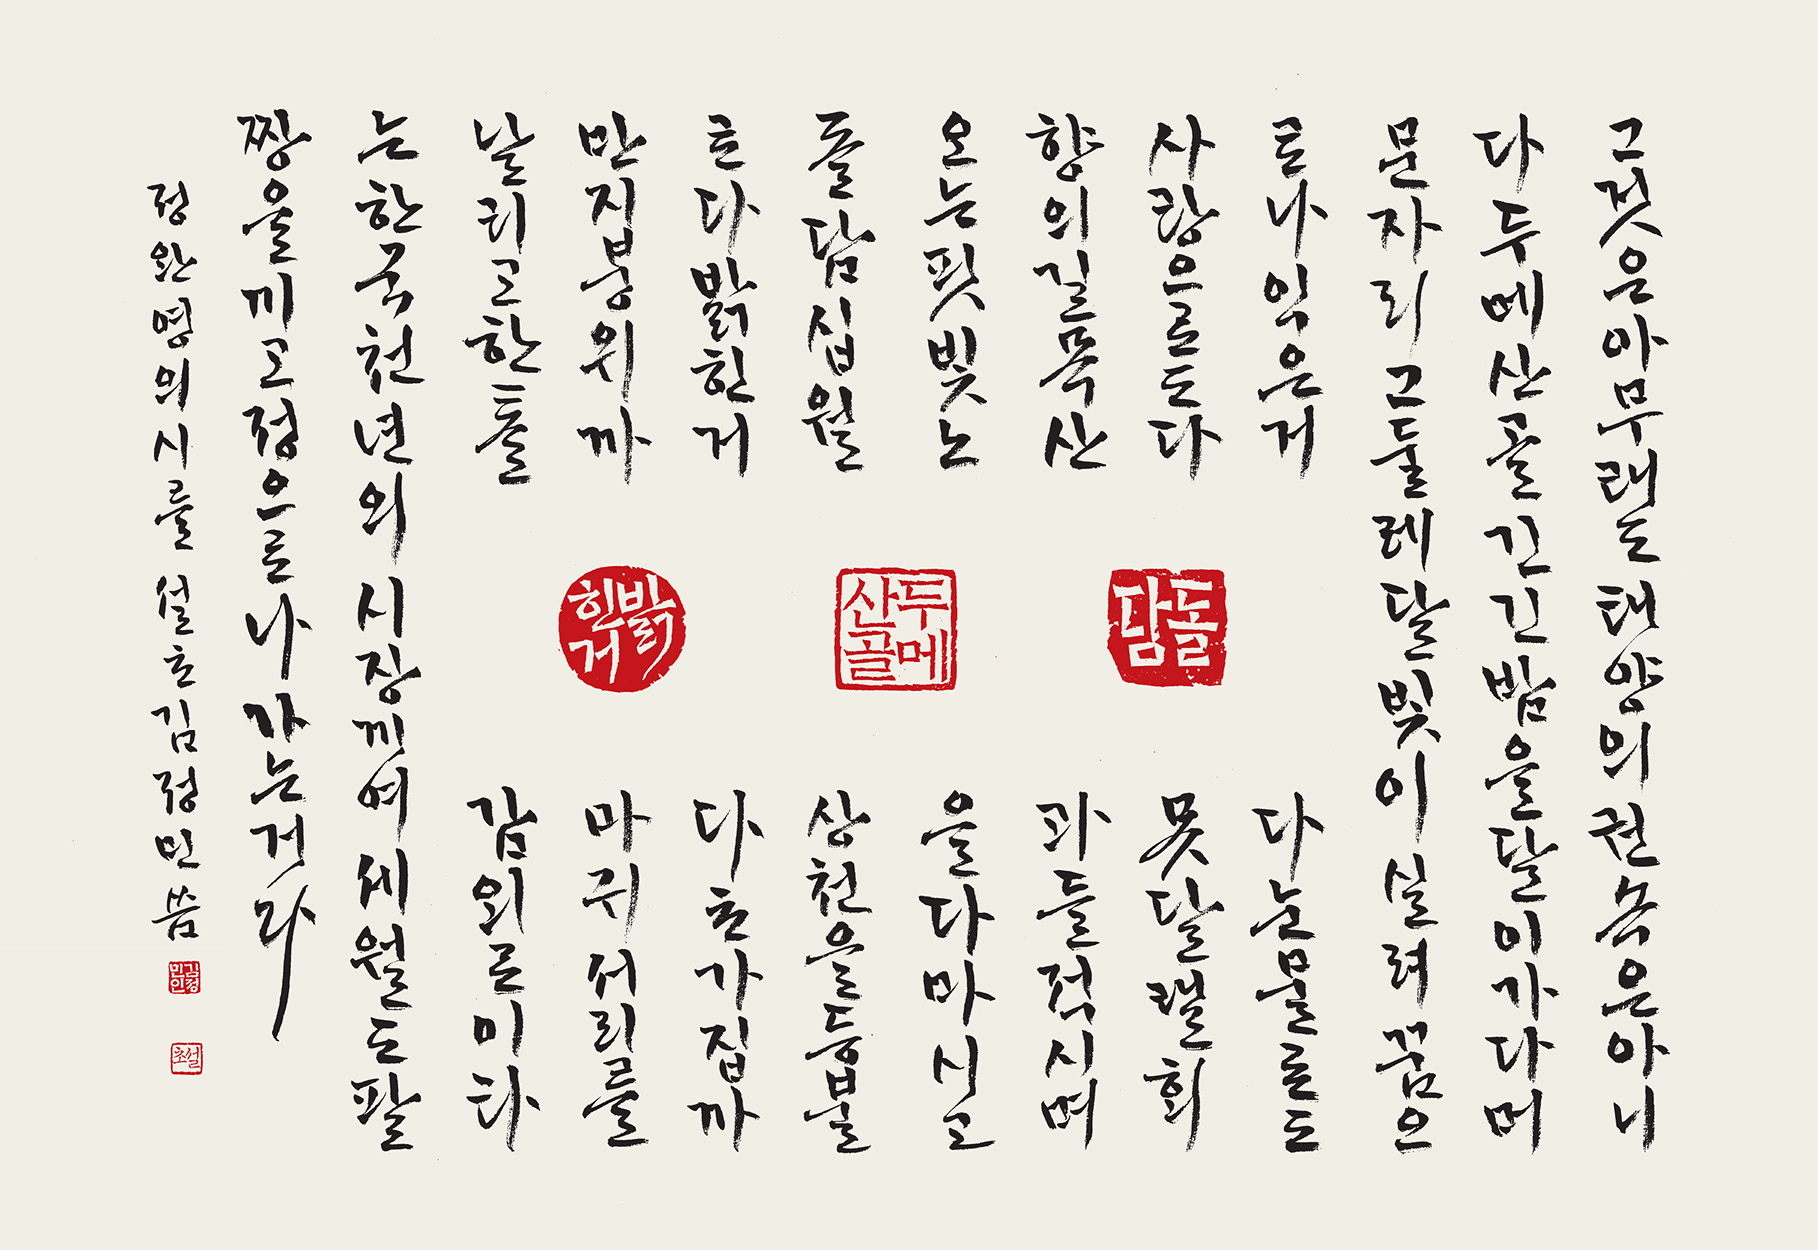 그것은아무래도태양의권속은아니
다두메산골긴긴밤을달이가다머
문자리그둘레달빛이실려꿈으
로나익은거 다눈물로도
사랑으로도다 못달랠회
향의길목산 과들적시며
오는핏빛노 을다마시고
돌담십월 상천을등불
로다밝힌거 다초가집까
만지붕위까 마귀서리를
날리고한톨 감외로이타
는한국천년의시장끼여세월도팔
짱을끼고정으로나가는거라
정완영의시를 설초김정민씀
돌담
두메산골
밝힌거
김정민인
설초